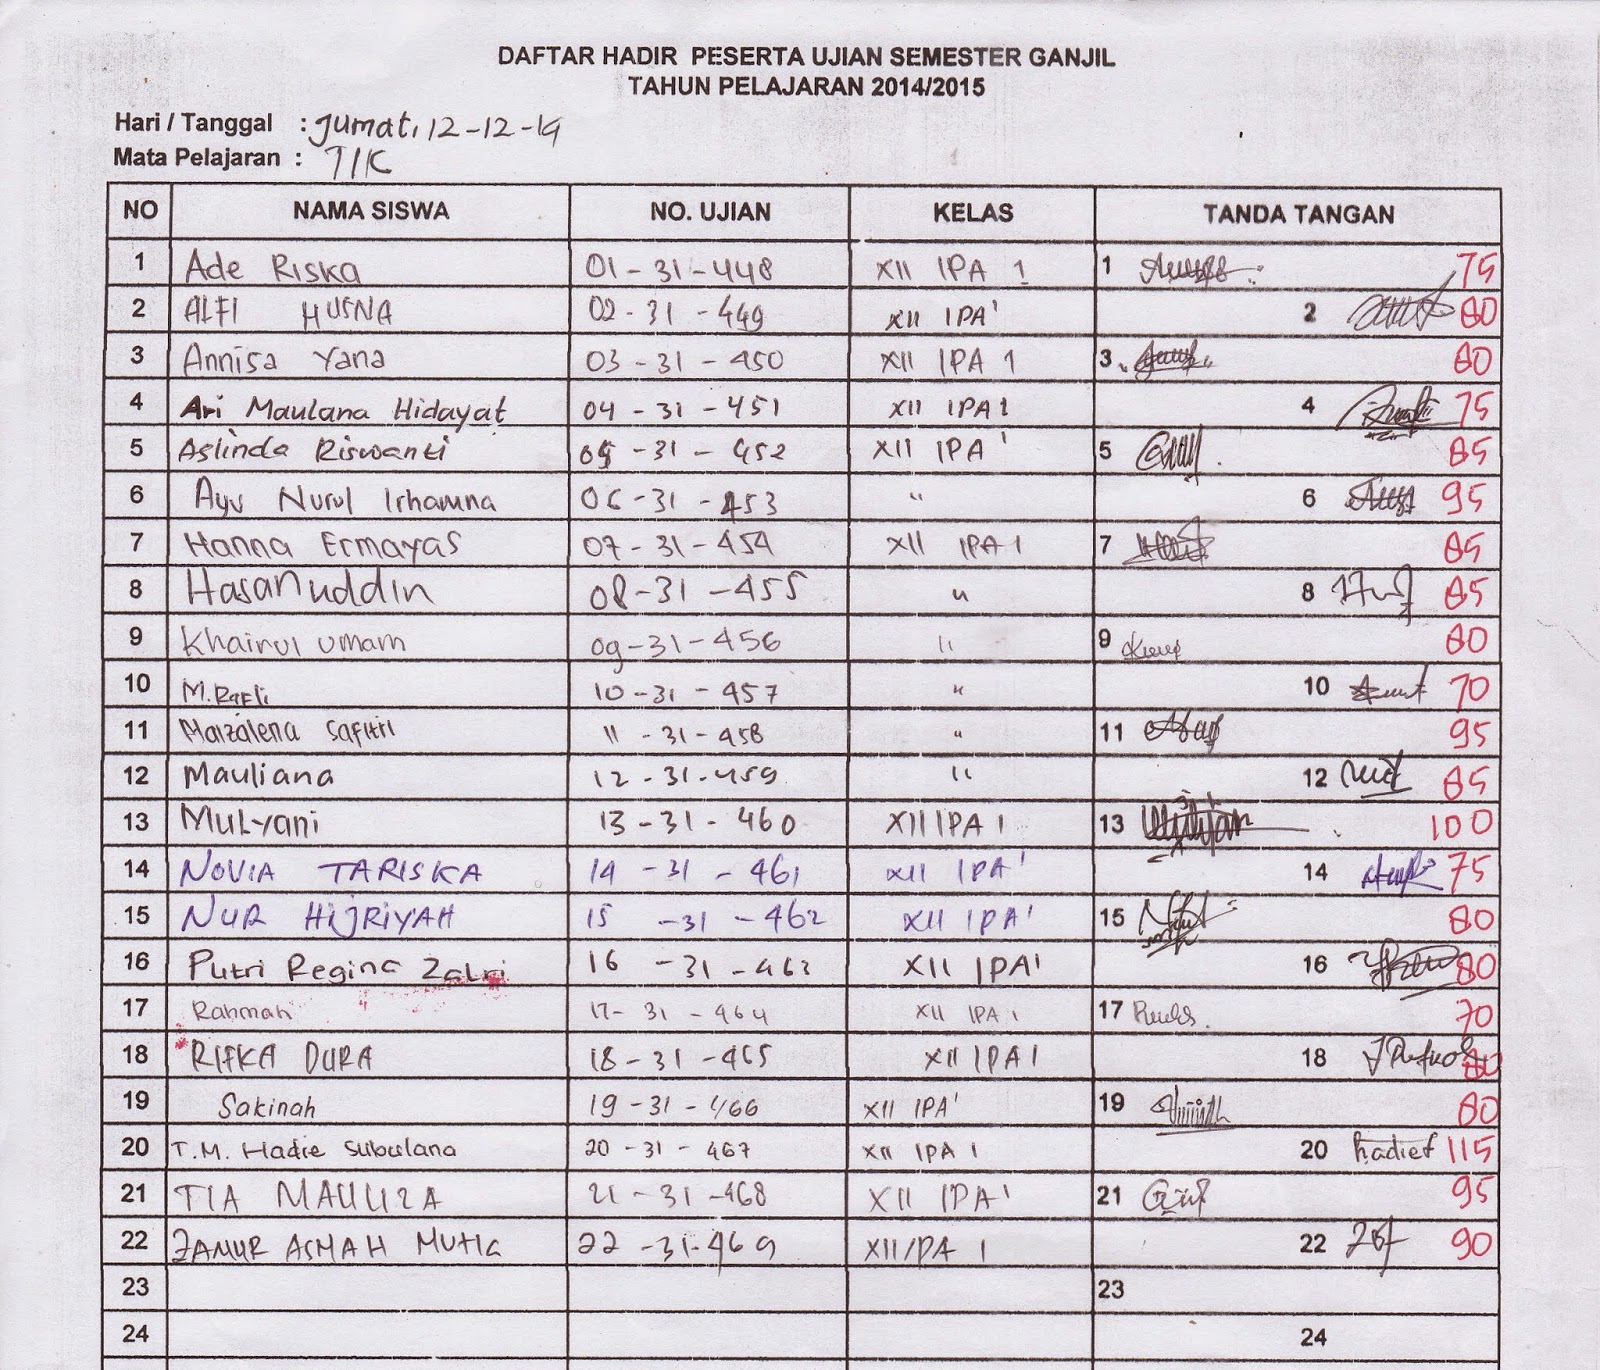 DAFTAR HADIR PESERTA UJIAN SEMESTER GANJIL
TAHUN PELAJARAN 2014/2015
Hari / Tanggal : Jumat, 12-12-14
Mata Pelajaran : TIK
NO NAMA SISWA NO. UJIAN KELAS TANDA TANGAN
1 Ade Riska 01-31-448 XII IPA 1 1 75
2 ALFI HUSNA 02-31-449 XII IPA1 2 80
3 Annisa Yana 03-31-450 XII IPA 1 3 80
4 Ari Maulana Hidayat 04-31-451 XII IPA1 4 75
5 Aslinda Riswanti 05-31-452 XII IPA1 5 85
6 Ayu Nurul Irhamna 06-31-453 " 6 95
7 Hanna Ermayas 07-31-454 XII IPA 1 7 85
8 Hasanuddin 08-31-455 " 8 85
9 Khairul Umam 09-31-456 " 9 80
10 M.Rafli 10-31-457 " 10 70
11 Maizalena Safitri 11-31-458 " 11 95
12 Mauliana 12-31-459 " 12 85
13 Mulyani 13-31-460 XII IPA 1 13 100
14 NOVIA TARISKA 14-31-461 XII IPA1 14 75
15 NUR HIJRIYAH 15-31-462 XII IPA1 15 80
16 Putri Regina 16-31-463 XII IPA1 16 80
17 Rahmah 17-31-464 XII IPA 1 17 70
18 RIFKA DURA 18-31-465 XII IPA1 18 80
19 Sakinah 19-31-466 XII IPA1 19 80
20 T.M. Hadie Subulana 20-31-467 XII IPA 1 20 hadief 115
21 TIA MAULIZA 21-31-468 XII IPA1 21 95
22 ZAMUR ASMAH MUTIA 22-31-469 XII/PA 1 22 90
23 23
24 24